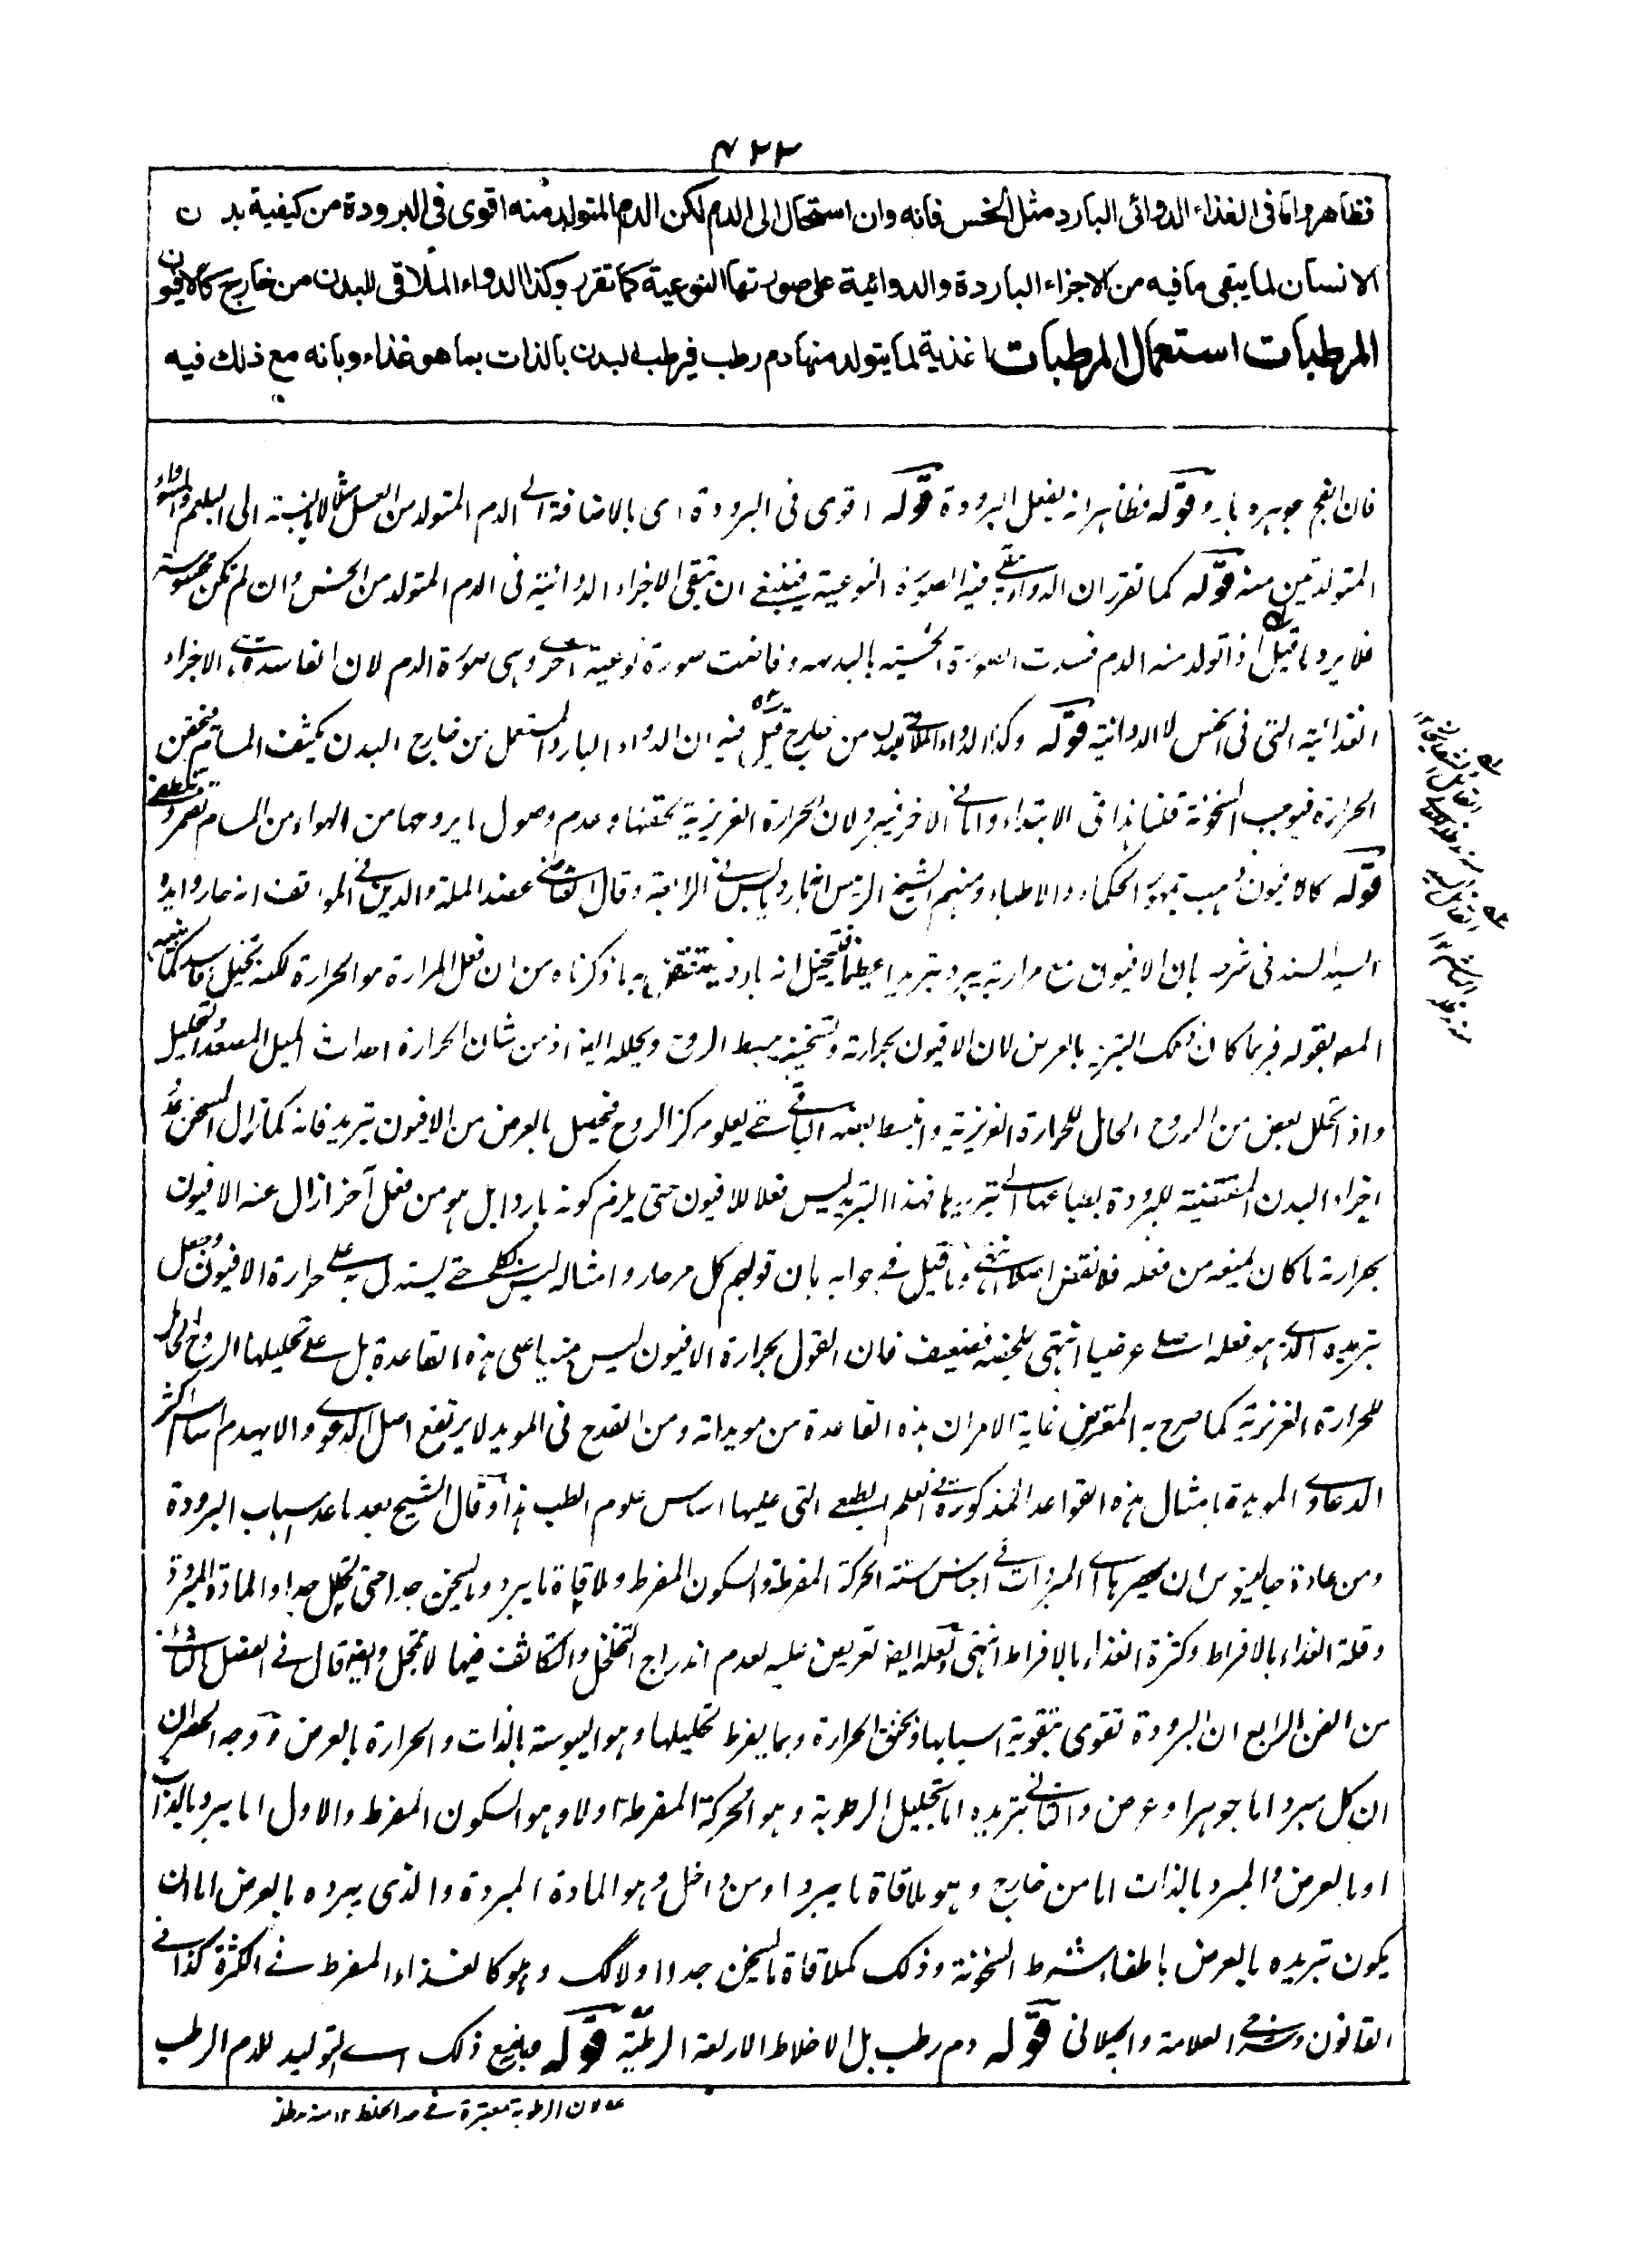 ٤٢٢
فظاهر واما فى الغذاء الدوائى البارد مثل الخس فانه وان استحال الى الدم لكن الدم المتولد منه اقوى فى البرودة من كيفية بدن
الانسان لما يبقى ما فيه من الاجزاء الباردة والدوائية على صورتها النوعية كما تقرر وكذا الدواء الملاقى للبدن من خارج كالافيون
المرطبات استعمال المرطبات اغذية لما يتولد منها دم رطب فيرطب البدن بالذات بما هو غذاء وبانه مع ذلك فيه
فان جوهره بارد قوله فظاهر انه يفعل البرودة قوله اقوى فى البرودة اى بالاضافة الى الدم المتولد من العسل مثلا لا بالنسبة الى البلغم والسوداء
المتولدين منه قوله كما تقرر ان الدواء يبقى فيه الصورة النوعية فينبغى ان تبقى الاجزاء الدوائية فى الدم المتولد من الخس وان لم تكن محسوسة
فلا يرد ما قيل اذا تولد منه الدم فسدت الصورة الخسية بالبديهة وفاضت صورة نوعية اخرى وهى صورة الدم لان الفاسدة الاجزاء
الغذائية التى فى الخس لا الدوائية قوله وكذا الدواء الملاقى للبدن من خارج قيل فيه ان الدواء البارد المستعمل من خارج البدن يكثف المسام فيحقن
الحرارة فيوجب السخونة قلنا هذا فى الابتداء واما فى الاخر فيبرد لان الحرارة الغريزية بحقنها وعدم وصول ما يروحها من الهواء من المسام
قوله كالافيون ذهب جمهور الحكماء والاطباء ومنهم الشيخ الرئيس انه بارد يابس فى الرابعة وقال القاضى عضد الملة والدين فى المواقف انه حار وايده
السيد السند فى شرحه بان الافيون مع مرارته يبرد تبريدا عظيما فيتخيل انه بارد فينتقض به ما ذكرناه من ان فعل المرارة هو الحرارة لكنه تخيل فاسد كما نبه
المصـ بقوله فربما كان ذلك التبريد بالعرض لان الافيون بحرارته وتسخينه يبسط الروح ويحلله ايضا اذ من شان الحرارة احداث الميل المصعد والتحليل
واذا تحلل بعض من الروح الحامل للحرارة الغريزية وانبسط بعضه الباقى حتى يعلو مركز الروح فيحصل بالعرض من الافيون تبريد فانه كما زال المسخن عند
اجزاء البدن المقتضية للبرودة بطباعها الى تبريدها فهذا التبريد ليس فعلا للافيون حتى يلزم كونه باردا بل هو من فعل آخر ازال عنه الافيون
بحرارته ما كان يمنعه من فعله فلا نقض اصلا انتهى وما قيل فى جوابه بان قولهم كل مر حار وامثاله ليس بكلى حتى يستدل به على حرارة الافيون وجعل
تبريده الذى هو فعله اصلى عرضيا انتهى بلخصه فضعيف فان القول بحرارة الافيون ليس مبنيا على هذه القاعدة بل على تحليلها الروح الحامل
للحرارة الغريزية كما صرح به المعترض غاية الامر ان هذه القاعدة من مويداته ومن القدح فى المويد لا يرتفع اصل الدعوى والا يهدم اساس اكثر
الدعاوى المويدة بامثال هذه القواعد المذكورة فى العلم الطبعى التى عليها اساس علوم الطب هذا وقال الشيخ بعد ما عد اسباب البرودة
ومن عادة جالينوس ان يحصر باب المبردات فى اجناس ستة الحركة المفرطة والسكون المفرط وملاقاة ما يبرد وما يسخن جدا حتى يحلل جدا والمادة المبردة
وقلة الغذاء بالافراط وكثرة الغذاء بالافراط انتهى ولعله ايضا تعريض عليه لعدم اندراج التخلخل والتكاثف فيها لا تعجل وايضا قال فى الفصل الثالث
من الفن الرابع ان البرودة تقوى بتقوية اسبابها وبخنق الحرارة وبما يفرط تحليلها وهو اليبوسة بالذات والحرارة بالعرض ووجه الحصر ان
ان كل مبرد اما جوهر او عرض والثانى تبريده اما بتحليل الرطوبة وهو الحركة المفرطة اولا وهو السكون المفرط والاول اما يبرد بالذات
او بالعرض والمبرد بالذات اما من خارج وهو ملاقاة ما يبرد او من داخل وهو المادة المبردة والذى يبرده بالعرض اما ان
يكون تبريده بالعرض باطفاء شرط السخونة وذلك كملاقاة ما يسخن جدا اولا كك وهو كالغذاء المفرط فى الكثرة كذا فى
القانون وشرحى العلامة والجيلانى قوله دم رطب بل الاخلاط الاربعة الرطبة قوله مع ذلك اى التوليد للدم الرطب
لان الرطوبة معتبرة فى حد الخلط ١٢ منه مدظله